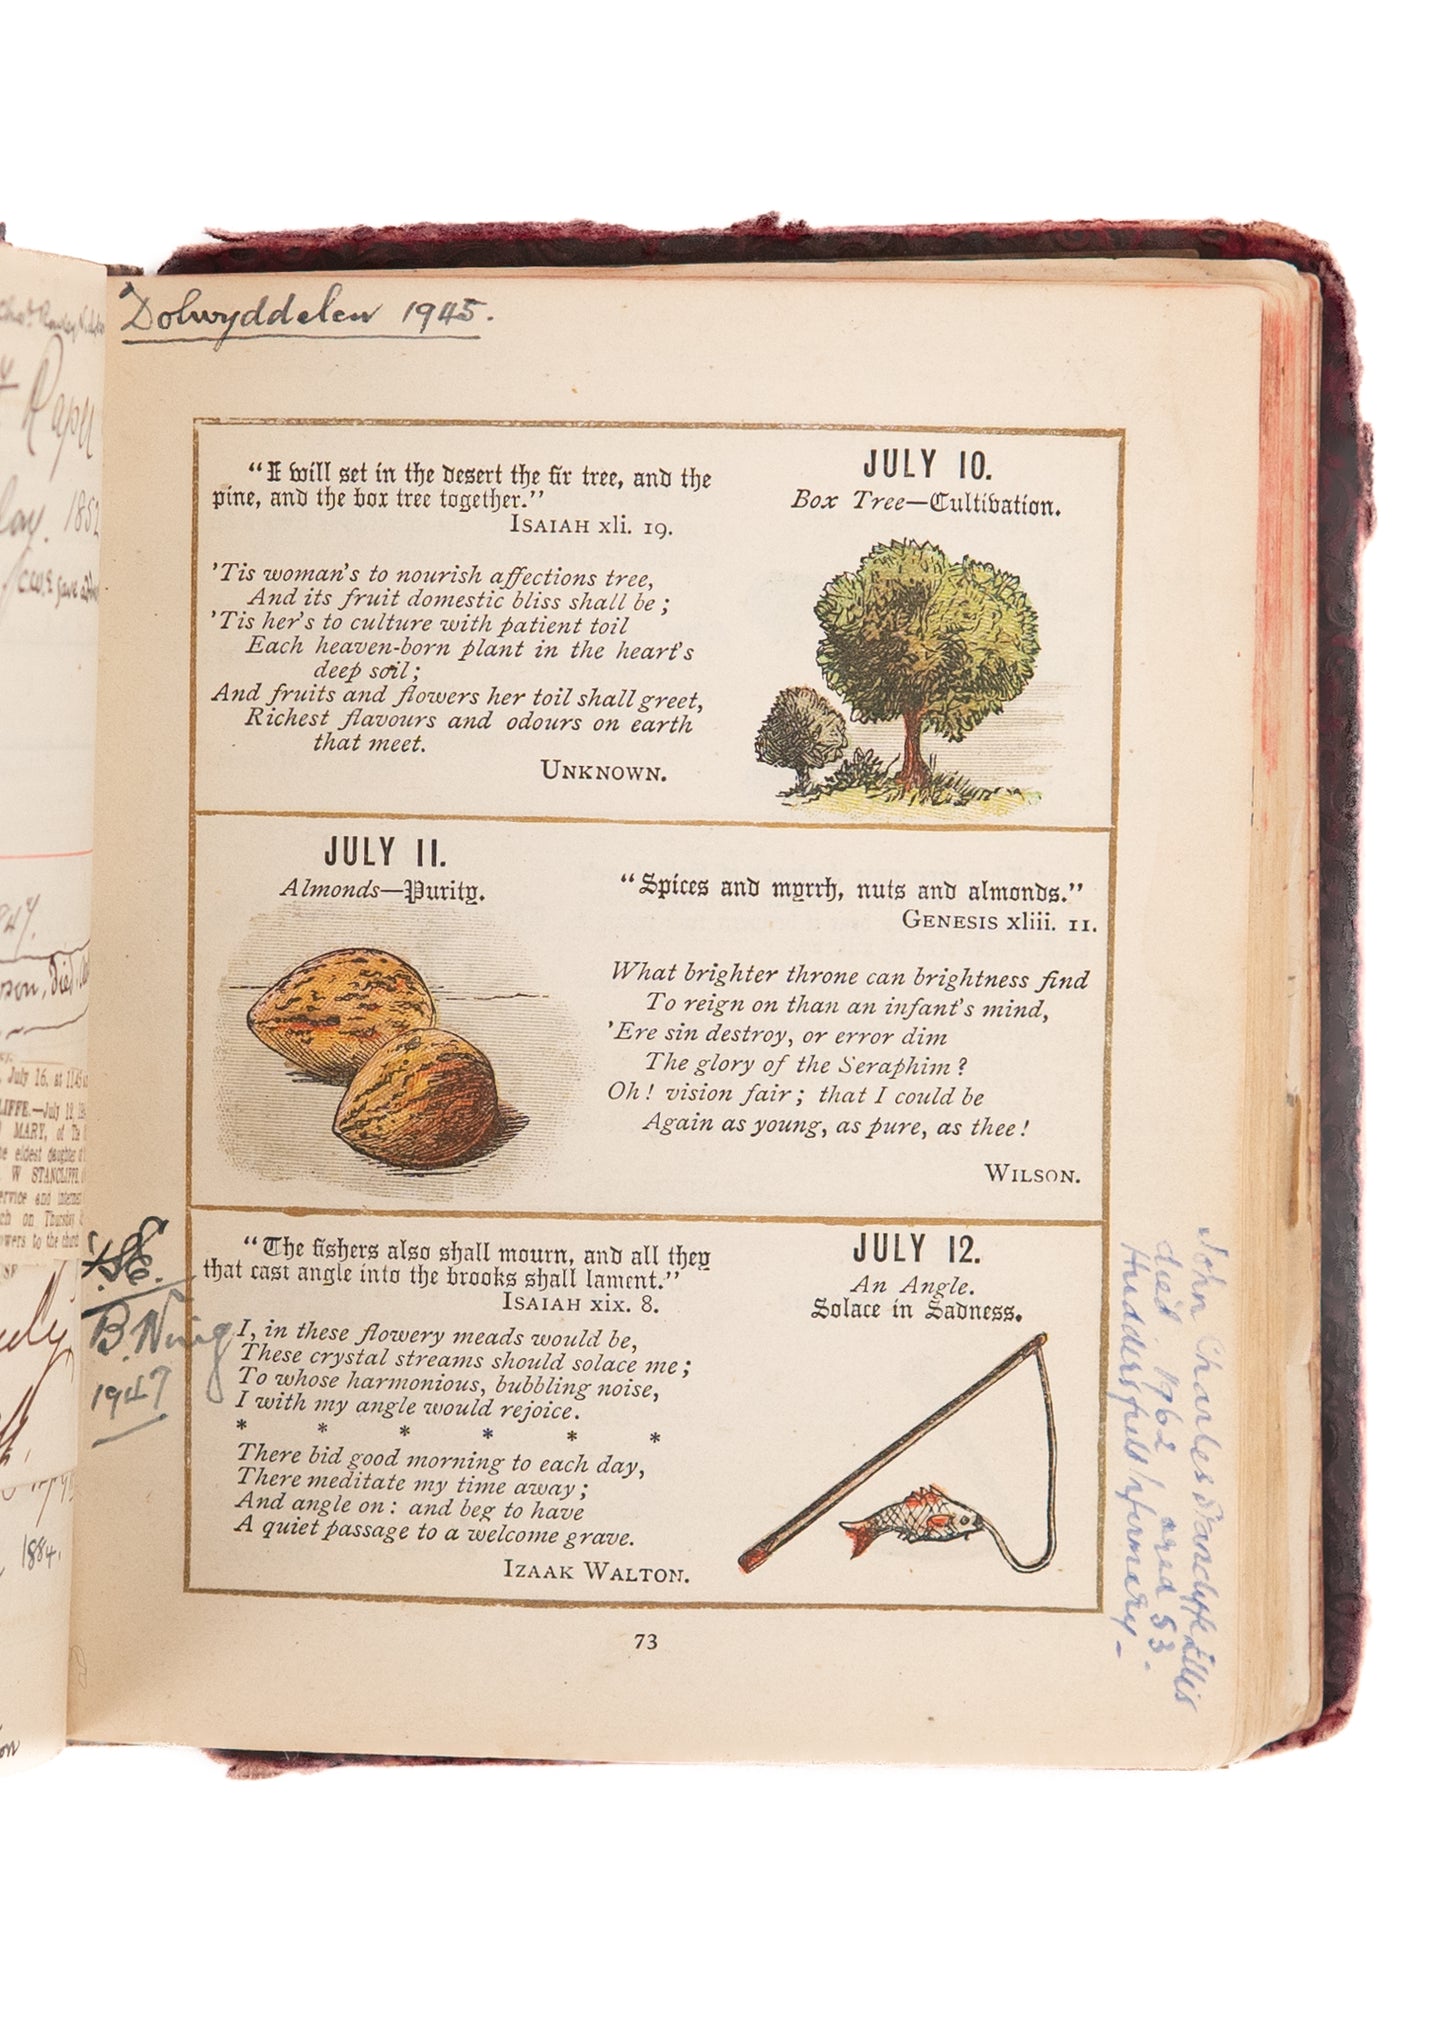 Dolwyddelen 1945.
"I will set in the desert the fir tree, and the
pine, and the box tree together."
ISAIAH xli. 19.
'Tis woman's to nourish affections tree,
And its fruit domestic bliss shall be;
'Tis her's to culture with patient toil
Each heaven-born plant in the heart's
deep soil;
And fruits and flowers her toil shall greet,
Richest flavours and odours on earth
that meet.
UNKNOWN.
JULY 10.
Box Tree—Cultivation.
JULY 11.
Almonds—Purity.
"Spices and myrrh, nuts and almonds."
GENESIS xliii. 11.
What brighter throne can brightness find
To reign on than an infant's mind,
'Ere sin destroy, or error dim
The glory of the Seraphim?
Oh! vision fair; that I could be
Again as young, as pure, as thee!
WILSON.
"The fishers also shall mourn, and all they
that cast angle into the brooks shall lament."
ISAIAH xix. 8.
I, in these flowery meads would be,
These crystal streams should solace me;
To whose harmonious, bubbling noise,
I with my angle would rejoice.
* * * * * *
There bid good morning to each day,
There meditate my time away;
And angle on: and beg to have
A quiet passage to a welcome grave.
IZAAK WALTON.
JULY 12.
An Angle.
Solace in Sadness.
73
1947
John Charles Stancliffe Ellis
died 1962 aged 53.
Huddersfield Infirmary -
1852
July 16. at
LIFFE.—July
MARY, of
eldest daughter
W STANCLIFFE
on Thursday
to the
1884.